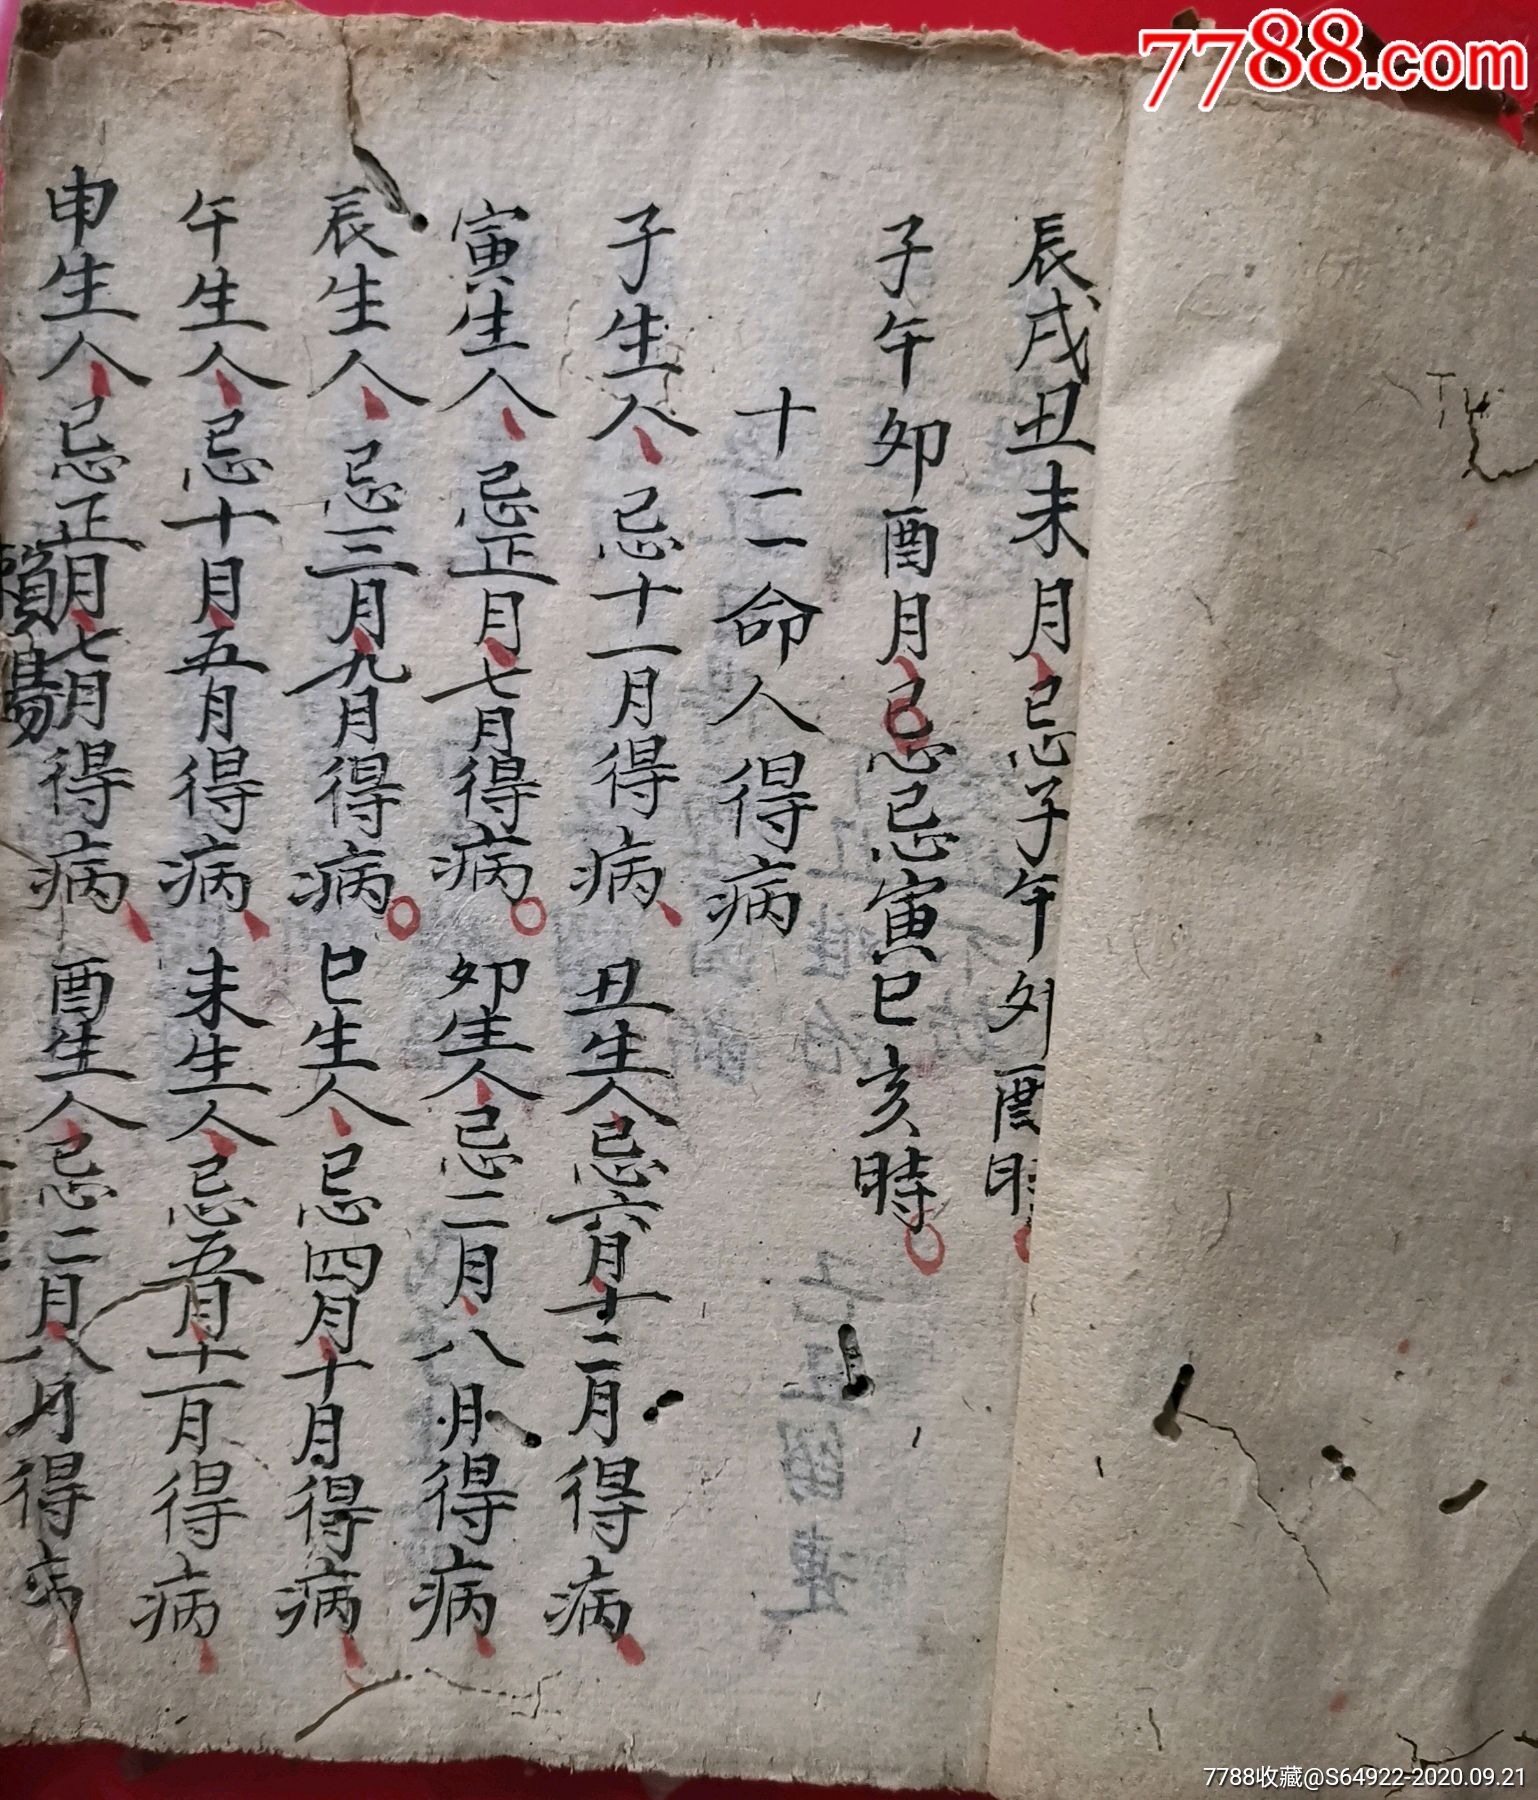 7788.com
辰戌丑未月忌子午卯酉時
子午卯酉月忌忌寅巳亥時
十二命人得病
子生人忌十一月得病 丑生人忌六月十二月得病
寅生人忌正月七月得病 卯生人忌二月八月得病
辰生人忌三月九月得病 巳生人忌四月十月得病
午生人忌十月五月得病 未生人忌五月十一月得病
申生人忌正月七月得病 酉生人忌二月八月得病
7788收藏@S64922-2020.09.21